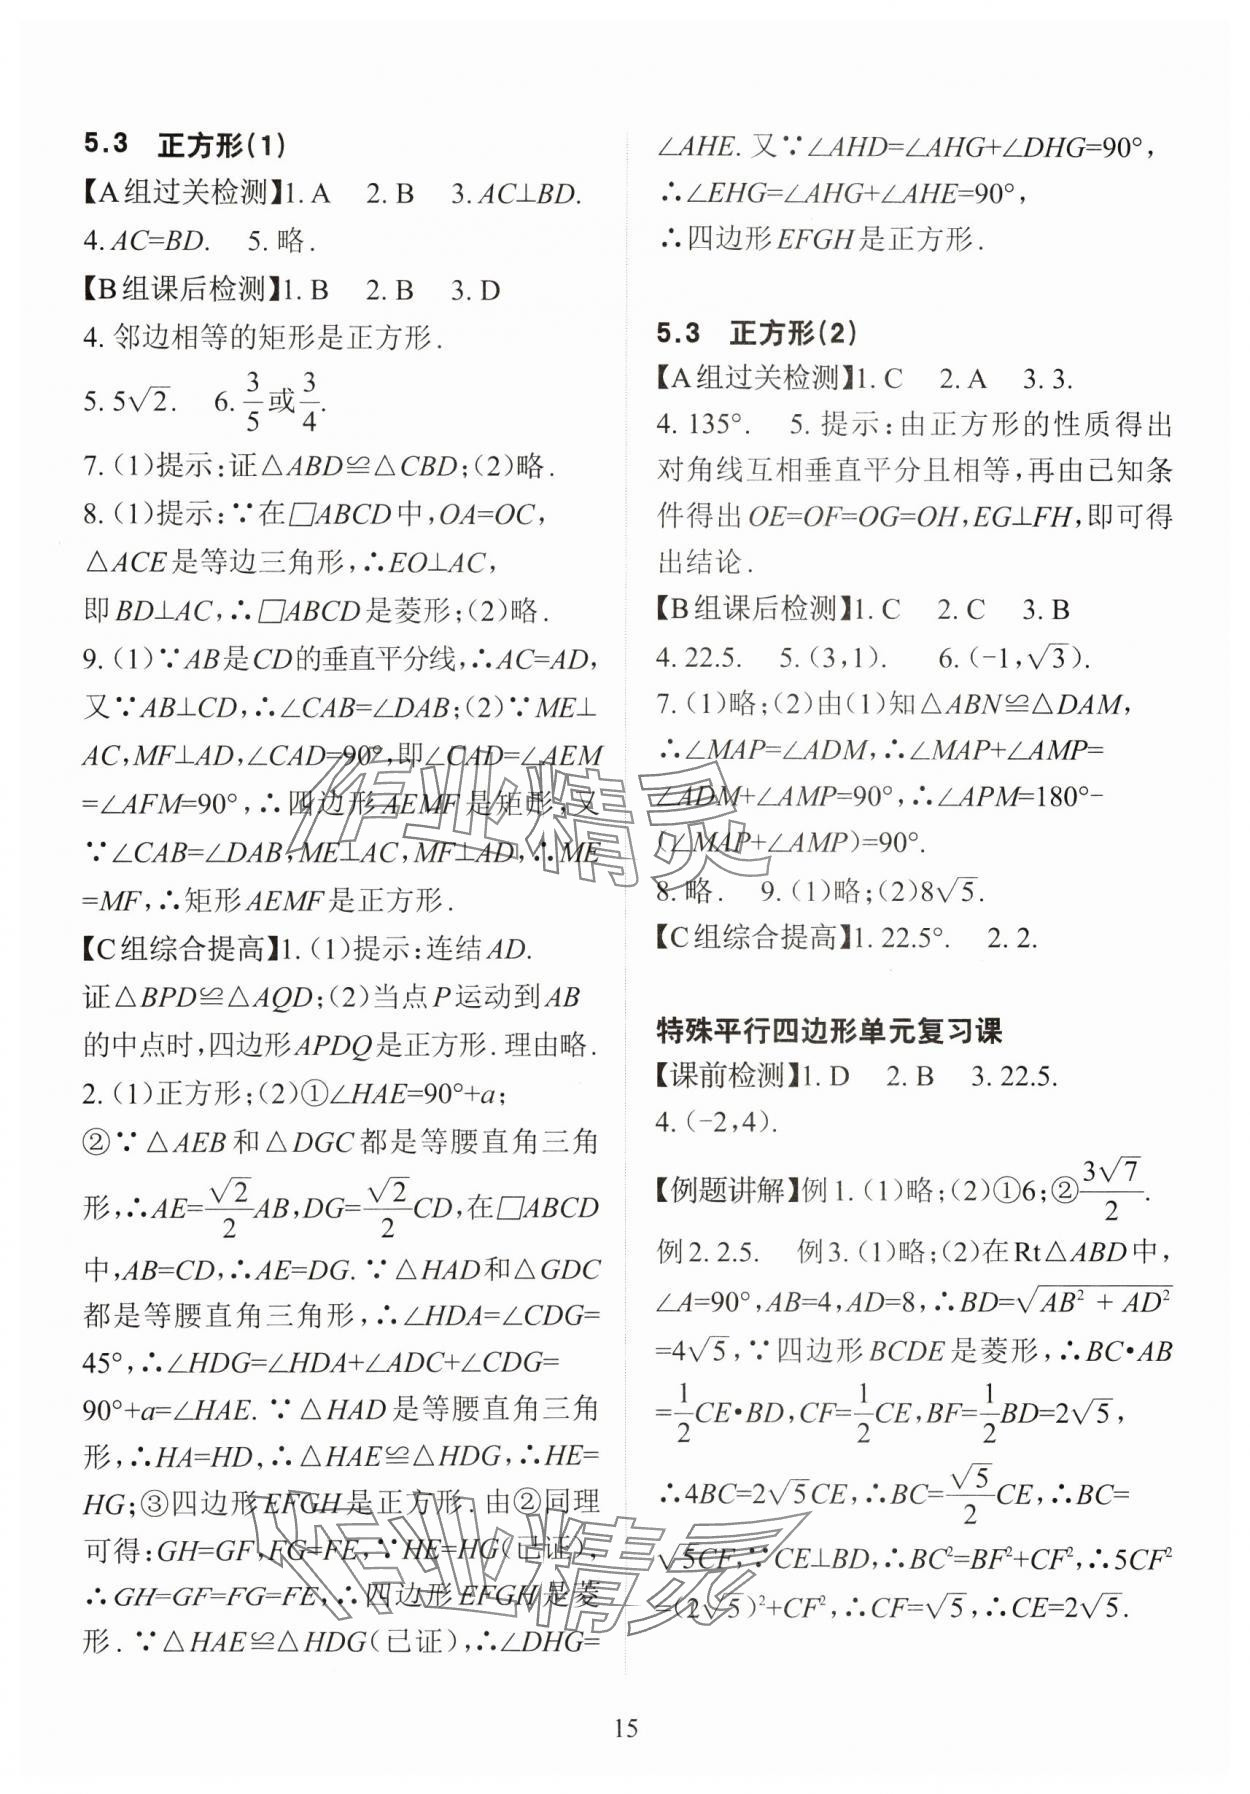 5.3 正方形(1)
【A组过关检测】1. A 2. B 3. AC⊥BD.
4. AC=BD. 5. 略.
【B组课后检测】1. B 2. B 3. D
4. 邻边相等的矩形是正方形.
5. 5√2. 6. 3/5或3/4.
7. (1)提示:证△ABD≌△CBD;(2)略.
8. (1)提示:∵在□ABCD中,OA=OC,
△ACE是等边三角形,∴EO⊥AC,
即BD⊥AC,∴□ABCD是菱形;(2)略.
9. (1)∵AB是CD的垂直平分线,∴AC=AD,
又∵AB⊥CD,∴∠CAB=∠DAB;(2)∵ME⊥
AC,MF⊥AD,∠CAD=90°,即∠CAD=∠AEM
=∠AFM=90°,∴四边形AEMF是矩形,又
∵∠CAB=∠DAB,ME⊥AC,MF⊥AD,∴ME
=MF,∴矩形AEMF是正方形.
【C组综合提高】1. (1)提示:连结AD.
证△BPD≌△AQD;(2)当点P运动到AB
的中点时,四边形APDQ是正方形.理由略.
2. (1)正方形;(2)①∠HAE=90°+a;
②∵△AEB和△DGC都是等腰直角三角
形,∴AE=√2/2AB,DG=√2/2CD,在□ABCD
中,AB=CD,∴AE=DG.∵△HAD和△GDC
都是等腰直角三角形,∴∠HDA=∠CDG=
45°,∴∠HDG=∠HDA+∠ADC+∠CDG=
90°+a=∠HAE.∵△HAD是等腰直角三角
形,∴HA=HD,∴△HAE≌△HDG,∴HE=
HG;③四边形EFGH是正方形.由②同理
可得:GH=GF,FG=FE,∵HE=HG(已证),
∴GH=GF=FG=FE,∴四边形EFGH是菱
形.∵△HAE≌△HDG(已证),∴∠DHG=
∠AHE.又∵∠AHD=∠AHG+∠DHG=90°,
∴∠EHG=∠AHG+∠AHE=90°,
∴四边形EFGH是正方形.
5.3 正方形(2)
【A组过关检测】1. C 2. A 3. 3.
4. 135°. 5. 提示:由正方形的性质得出
对角线互相垂直平分且相等,再由已知条
件得出OE=OF=OG=OH,EG⊥FH,即可得
出结论.
【B组课后检测】1. C 2. C 3. B
4. 22.5. 5. (3,1). 6. (-1,√3).
7. (1)略;(2)由(1)知△ABN≌△DAM,
∴∠MAP=∠ADM,∴∠MAP+∠AMP=
∠ADM+∠AMP=90°,∴∠APM=180°-
(∠MAP+∠AMP)=90°.
8. 略. 9. (1)略;(2)8√5.
【C组综合提高】1. 22.5°. 2. 2.
特殊平行四边形单元复习课
【课前检测】1. D 2. B 3. 22.5.
4. (-2,4).
【例题讲解】例1. (1)略;(2)①6;②3√7/2.
例2. 2.5. 例3. (1)略;(2)在Rt△ABD中,
∠A=90°,AB=4,AD=8,∴BD=√(AB²+AD²)
=4√5,∵四边形BCDE是菱形,∴BC•AB
=1/2CE•BD,CF=1/2CE,BF=1/2BD=2√5,
∴4BC=2√5CE,∴BC=√5/2CE,∴BC=
√5CF,∵CE⊥BD,∴BC²=BF²+CF²,∴5CF²
=(2√5)²+CF²,∴CF=√5,∴CE=2√5.
作业精灵
作业精灵
15